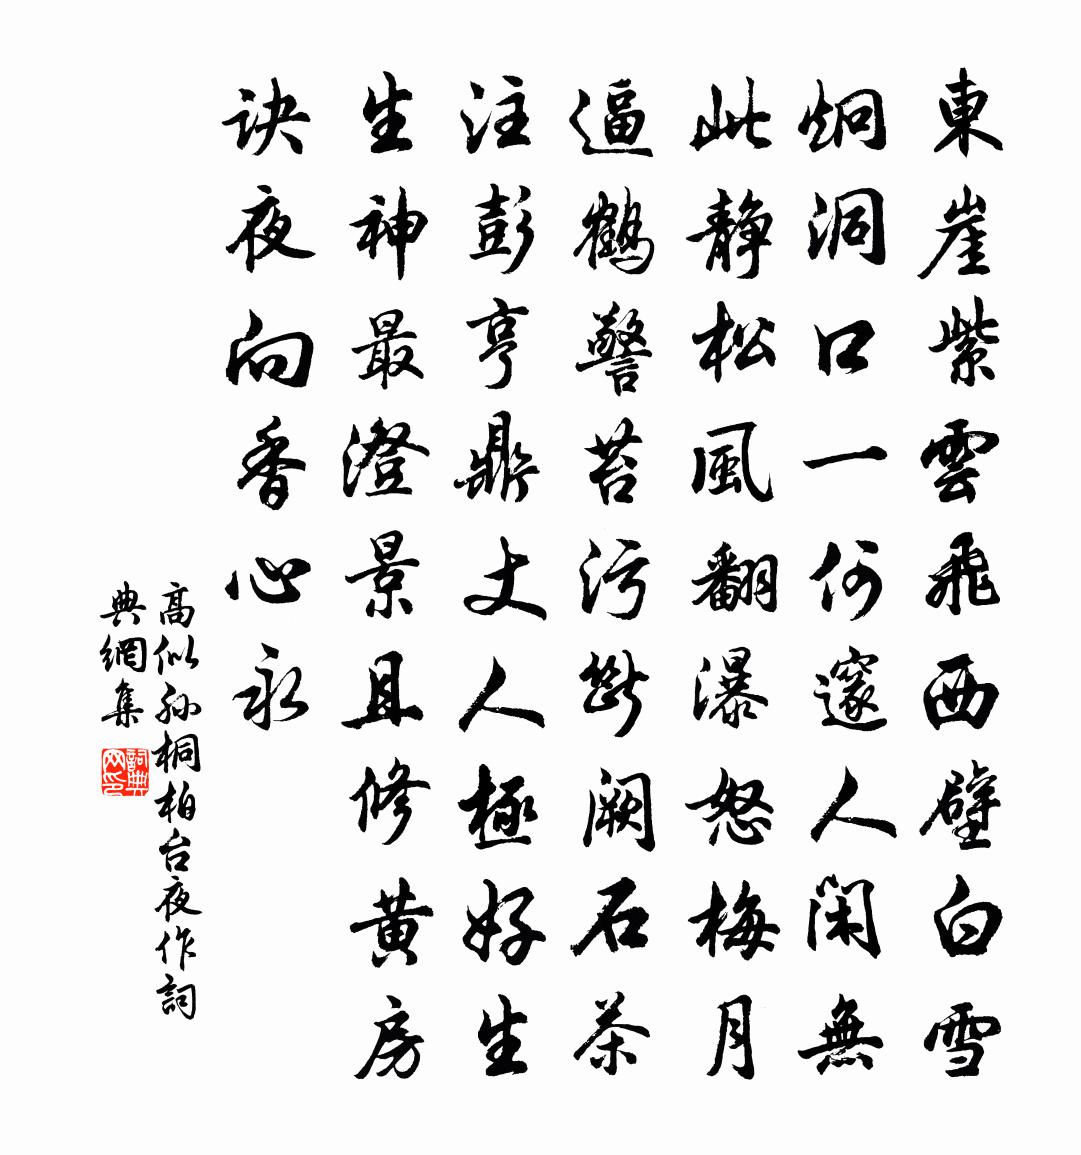 東崖紫雲飛西壁白雪
炯洞口一何邃人闲無
此靜松風翻瀑怒梅月
逼鶴警苔污斷阙石茶
注彭亨鼎丈人極好生
生神最澄景且修黄房
诀夜向香心永
高似孙桐柏台夜作詞
典網集
詞典网印